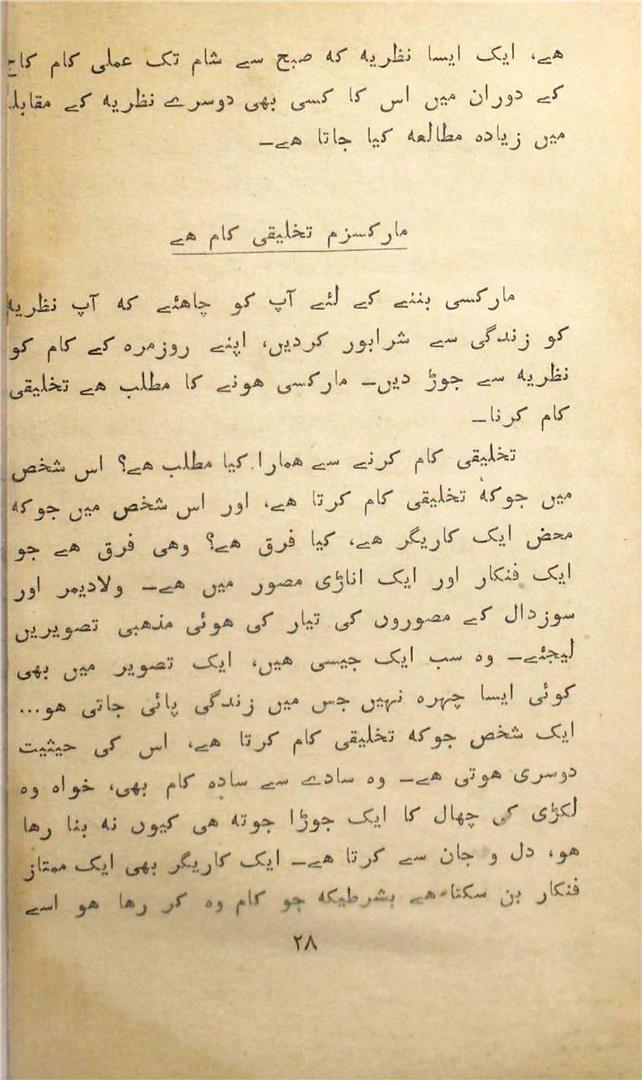 ھے، ایک ایسا نظریہ کہ صبح سے شام تک عملی کام کاج
کے دوران میں اس کا کسی بھی دوسرے نظریہ کے مقابلہ
میں زیادہ مطالعہ کیا جاتا ھے۔
مارکسزم تخلیقی کام ھے
مارکسی بننے کے لئے آپ کو چاھئے کہ آپ نظریہ
کو زندگی سے شرابور کردیں، اپنے روزمرہ کے کام کو
نظریہ سے جوڑ دیں۔ مارکسی ھونے کا مطلب ھے تخلیقی
کام کرنا۔
تخلیقی کام کرنے سے ھمارا کیا مطلب ھے؟ اس شخص
میں جوکہ تخلیقی کام کرتا ھے، اور اس شخص میں جوکہ
محض ایک کاریگر ھے، کیا فرق ھے؟ وھی فرق ھے جو
ایک فنکار اور ایک اناڑی مصور میں ھے۔ ولادیمر اور
سوزدال کے مصوروں کی تیار کی ھوئی مذھبی تصویریں
لیجئے۔ وہ سب ایک جیسی ھیں، ایک تصویر میں بھی
کوئی ایسا چہرہ نہیں جس میں زندگی پائی جاتی ھو...
ایک شخص جوکہ تخلیقی کام کرتا ھے، اس کی حیثیت
دوسری ھوتی ھے۔ وہ سادے سے سادہ کام بھی، خواہ وہ
لکڑی کی چھال کا ایک جوڑا جوتہ ھی کیوں نہ بنا رھا
ھو، دل و جان سے کرتا ھے۔ ایک کاریگر بھی ایک ممتاز
فنکار بن سکتا ھے بشرطیکہ جو کام وہ کر رھا ھو اسے
۲۸